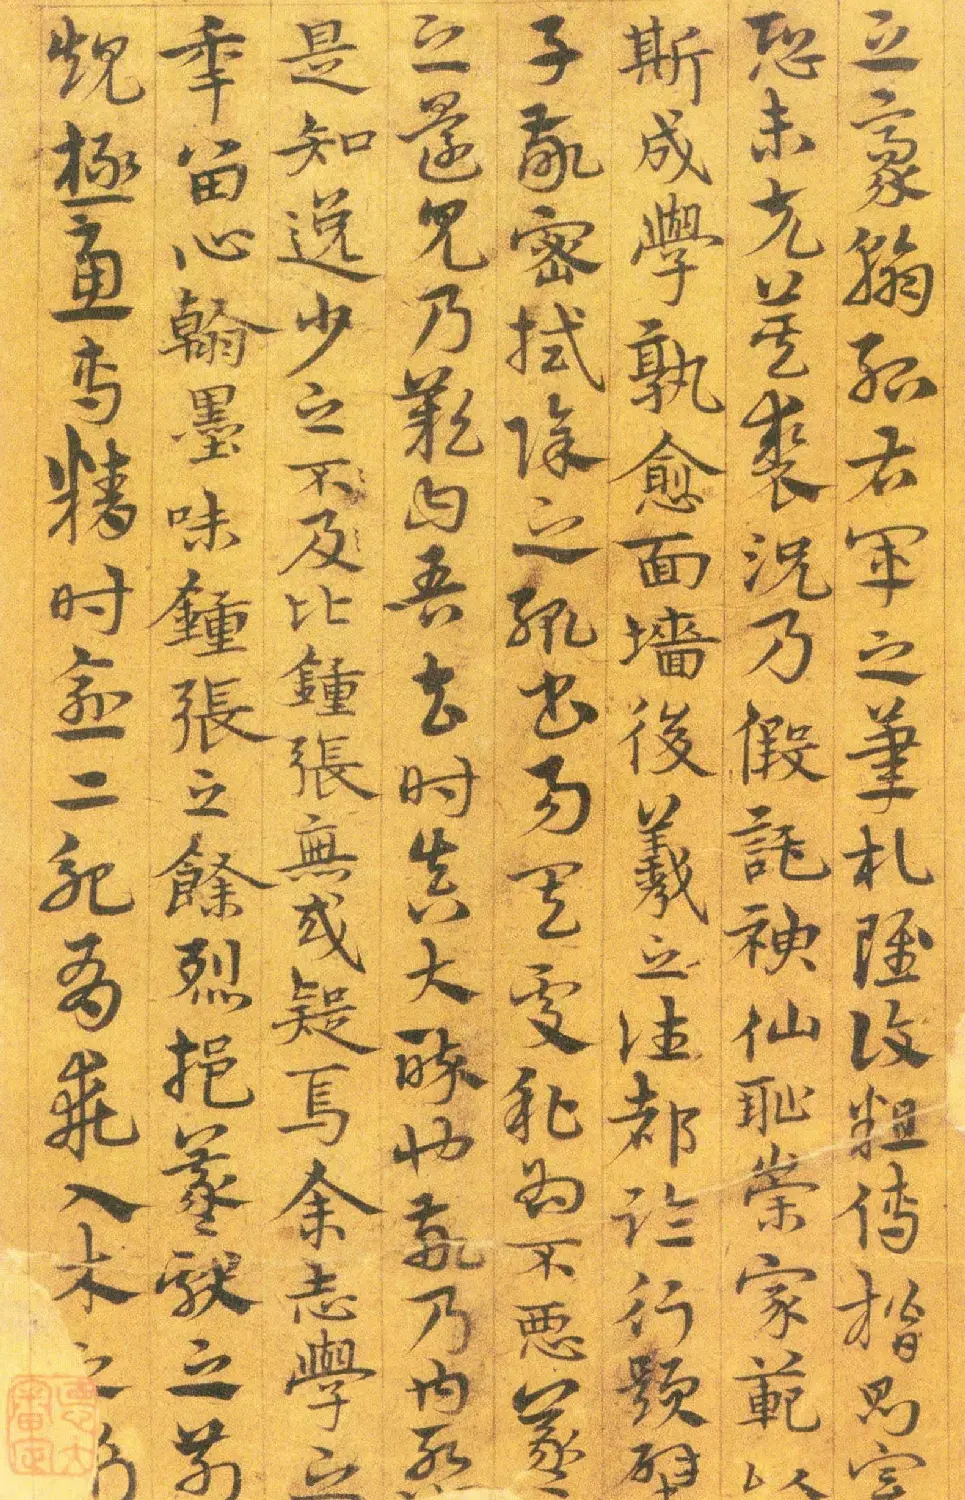 之豪翰紹右軍之筆札雖復粗傳楷則實
恐未克箕裘況乃假託神仙恥崇家範以
斯成學孰愈面墻後羲之往都臨行題壁
子敬密拭除之輒書易其處私為不惡羲
之還見乃歎曰吾去時真大醉也敬乃內慙
是知逸少之不及比鍾張無或疑焉余志學之
年留心翰墨味鍾張之餘烈挹羲獻之前
規極慮專精時逾二紀有乖入木之術